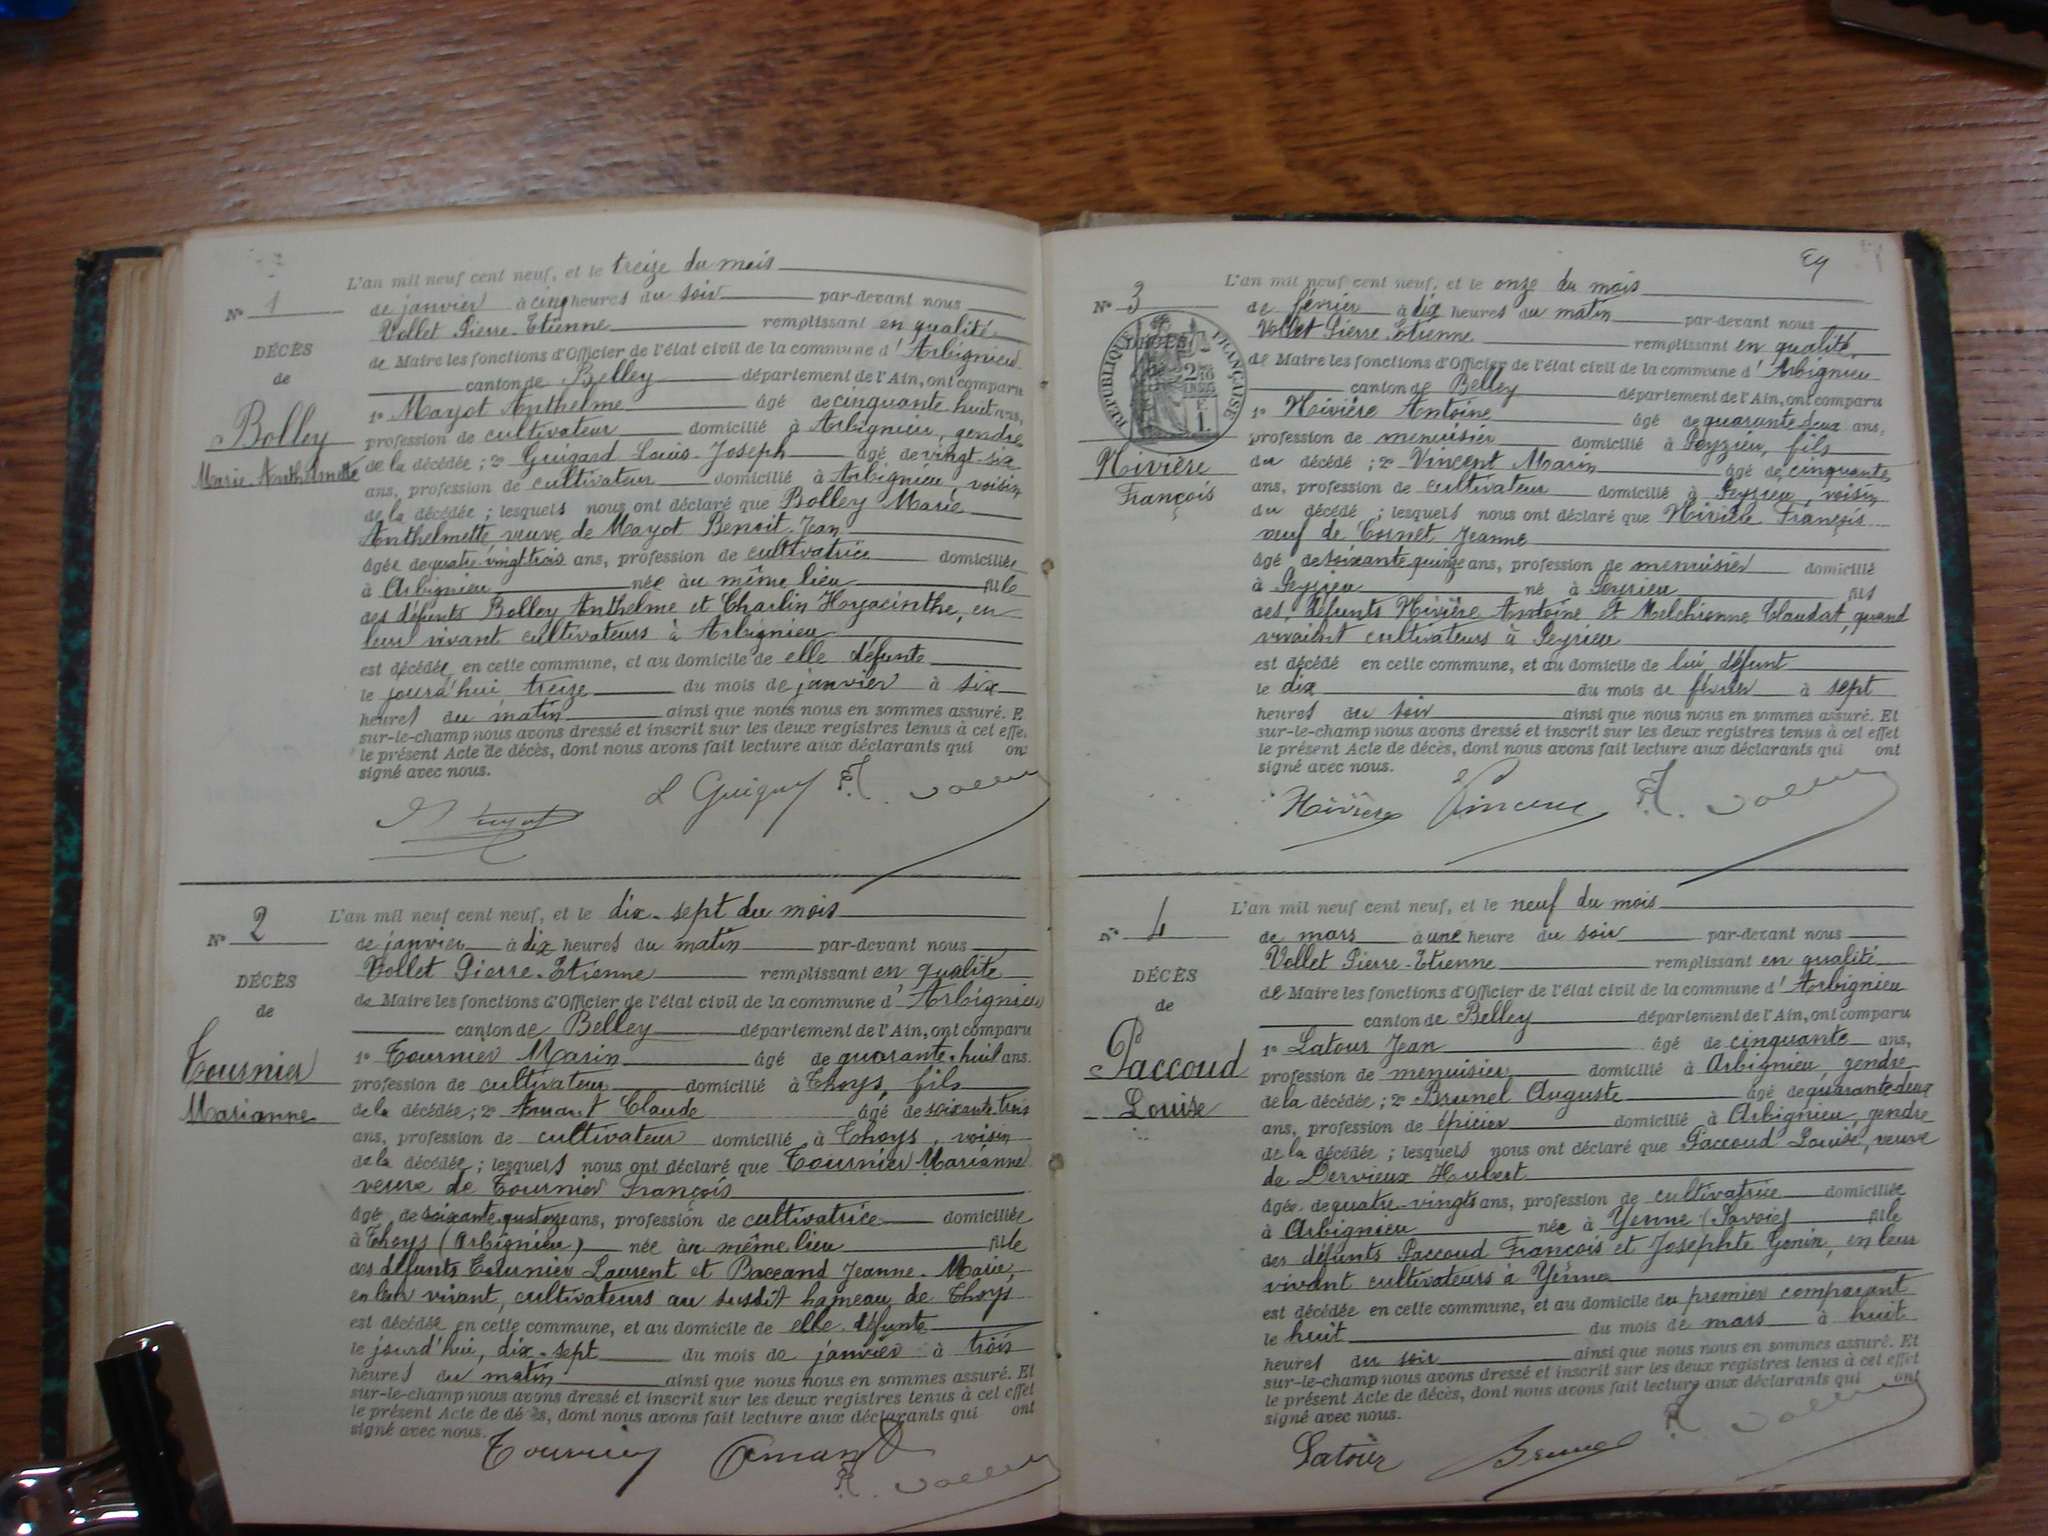 L'an mil neuf cent neuf, et le treize du mois
N° 1
de janvier à cinq heures du soir par-devant nous
Vollet Pierre-Etienne remplissant en qualité
DÉCÈS
de Maire les fonctions d'Officier de l'état civil de la commune d'Arbignieu
de
canton de Belley département de l'Ain, ont comparu
1° Mayot Anthelme âgé de cinquante huit ans,
Bolley
profession de cultivateur domicilié à Arbignieu, gendre
Marie-Anthelmette
de la décédée; 2° Guigard Louis-Joseph âgé de vingt-six
ans, profession de cultivateur domicilié à Arbignieu, voisin
de la décédée; lesquels nous ont déclaré que Bolley Marie
Anthelmette veuve de Mayot Benoit-Jean
âgée de quatre-vingt trois ans, profession de cultivatrice domiciliée
à Arbignieu née au même lieu fille
des défunts Bolley Anthelme et Charlin Hyacinthe, en
leur vivant cultivateurs à Arbignieu
est décédée en cette commune, et au domicile de elle défunte
le jourd'hui treize du mois de janvier à six
heures du matin ainsi que nous nous en sommes assuré. E
sur-le-champ nous avons dressé et inscrit sur les deux registres tenus à cet effe
le présent Acte de décès, dont nous avons fait lecture aux déclarants qui on
signé avec nous.
L'an mil neuf cent neuf, et le dix-sept du mois
N° 2
de janvier à dix heures du matin par-devant nous
Vollet Pierre-Etienne remplissant en qualité
DÉCÈS
de Maire les fonctions d'Officier de l'état civil de la commune d'Arbignieu
de
canton de Belley département de l'Ain, ont comparu
1° Tournier Marin âgé de quarante-huit ans.
Tournier
profession de cultivateur domicilié à Thoys, fils
Marianne
de la décédée; 2° Amant Claude âgé de soixante trois
ans, profession de cultivateur domicilié à Thoys, voisin
de la décédée; lesquels nous ont déclaré que Tournier Marianne
veuve de Tournier François
âgé de soixante quatorze ans, profession de cultivatrice domiciliée
à Thoys (Arbignieu) née au même lieu fille
des défunts Tournier Laurent et Baccand Jeanne-Marie,
en leur vivant, cultivateurs au susdit hameau de Thoys
est décédée en cette commune, et au domicile de elle défunte
le jourd'hui, dix-sept du mois de janvier à trois
heures du matin ainsi que nous nous en sommes assuré. Et
sur-le-champ nous avons dressé et inscrit sur les deux registres tenus à cet effet
le présent Acte de décès, dont nous avons fait lecture aux déclarants qui ont
signé avec nous.
Tournier Amant
L'an mil neuf cent neuf, et le onze du mois
N° 3
de février à dix heures du matin par-devant nous
Vollet Pierre Etienne remplissant en qualité
DÉCÈS
RÉPUBLIQUE FRANÇAISE
de Maire les fonctions d'Officier de l'état civil de la commune d'Arbignieu
canton de Belley département de l'Ain, ont comparu
1° Nivière Antoine âgé de quarante deux ans,
profession de menuisier domicilié à Peyzieu, fils
Nivière
François
du décédé; 2° Vincent Marin âgé de cinquante
ans, profession de cultivateur domicilié à Peyzieu, voisin
du décédé; lesquels nous ont déclaré que Nivière François
veuf de Cornet Jeanne
âgé de soixante quinze ans, profession de menuisier domicilié
à Peyzieu né à Peyzieu fils
des défunts Nivière Antoine et Melchionne Claudat, quand
vivaient cultivateurs à Peyrieu
est décédé en cette commune, et au domicile de lui défunt
le dix du mois de février à sept
heures du soir ainsi que nous nous en sommes assuré. Et
sur-le-champ nous avons dressé et inscrit sur les deux registres tenus à cet effet
le présent Acte de décès, dont nous avons fait lecture aux déclarants qui ont
signé avec nous.
Nivière Vincent
L'an mil neuf cent neuf, et le neuf du mois
N° 4
de mars à une heure du soir par-devant nous
Vollet Pierre-Etienne remplissant en qualité
DÉCÈS
de Maire les fonctions d'Officier de l'état civil de la commune d'Arbignieu
de
canton de Belley département de l'Ain, ont comparu
1° Latour Jean âgé de cinquante ans,
Paccoud
profession de menuisier domicilié à Arbignieu, gendre
Louise
de la décédée; 2° Brunel Auguste âgé de quarante-deux
ans, profession de épicier domicilié à Arbignieu, gendre
de la décédée; lesquels nous ont déclaré que Paccoud Louise, veuve
de Dervieux Hubert
âgée de quatre-vingts ans, profession de cultivatrice domiciliée
à Arbignieu née à Yenne (Savoie) fille
des défunts Paccoud François et Josephte Gonin, en leur
vivant cultivateurs à Yenne
est décédée en cette commune, et au domicile du premier comparant
le huit du mois de mars à huit
heures du soir ainsi que nous nous en sommes assuré. Et
sur-le-champ nous avons dressé et inscrit sur les deux registres tenus à cet effet
le présent Acte de décès, dont nous avons fait lecture aux déclarants qui ont
signé avec nous.
Latour Brunel